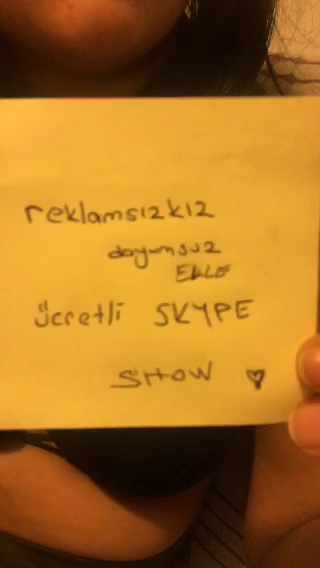 reklamsızkız
doyumsuz
ELLE
ücretli SKYPE
SHOW